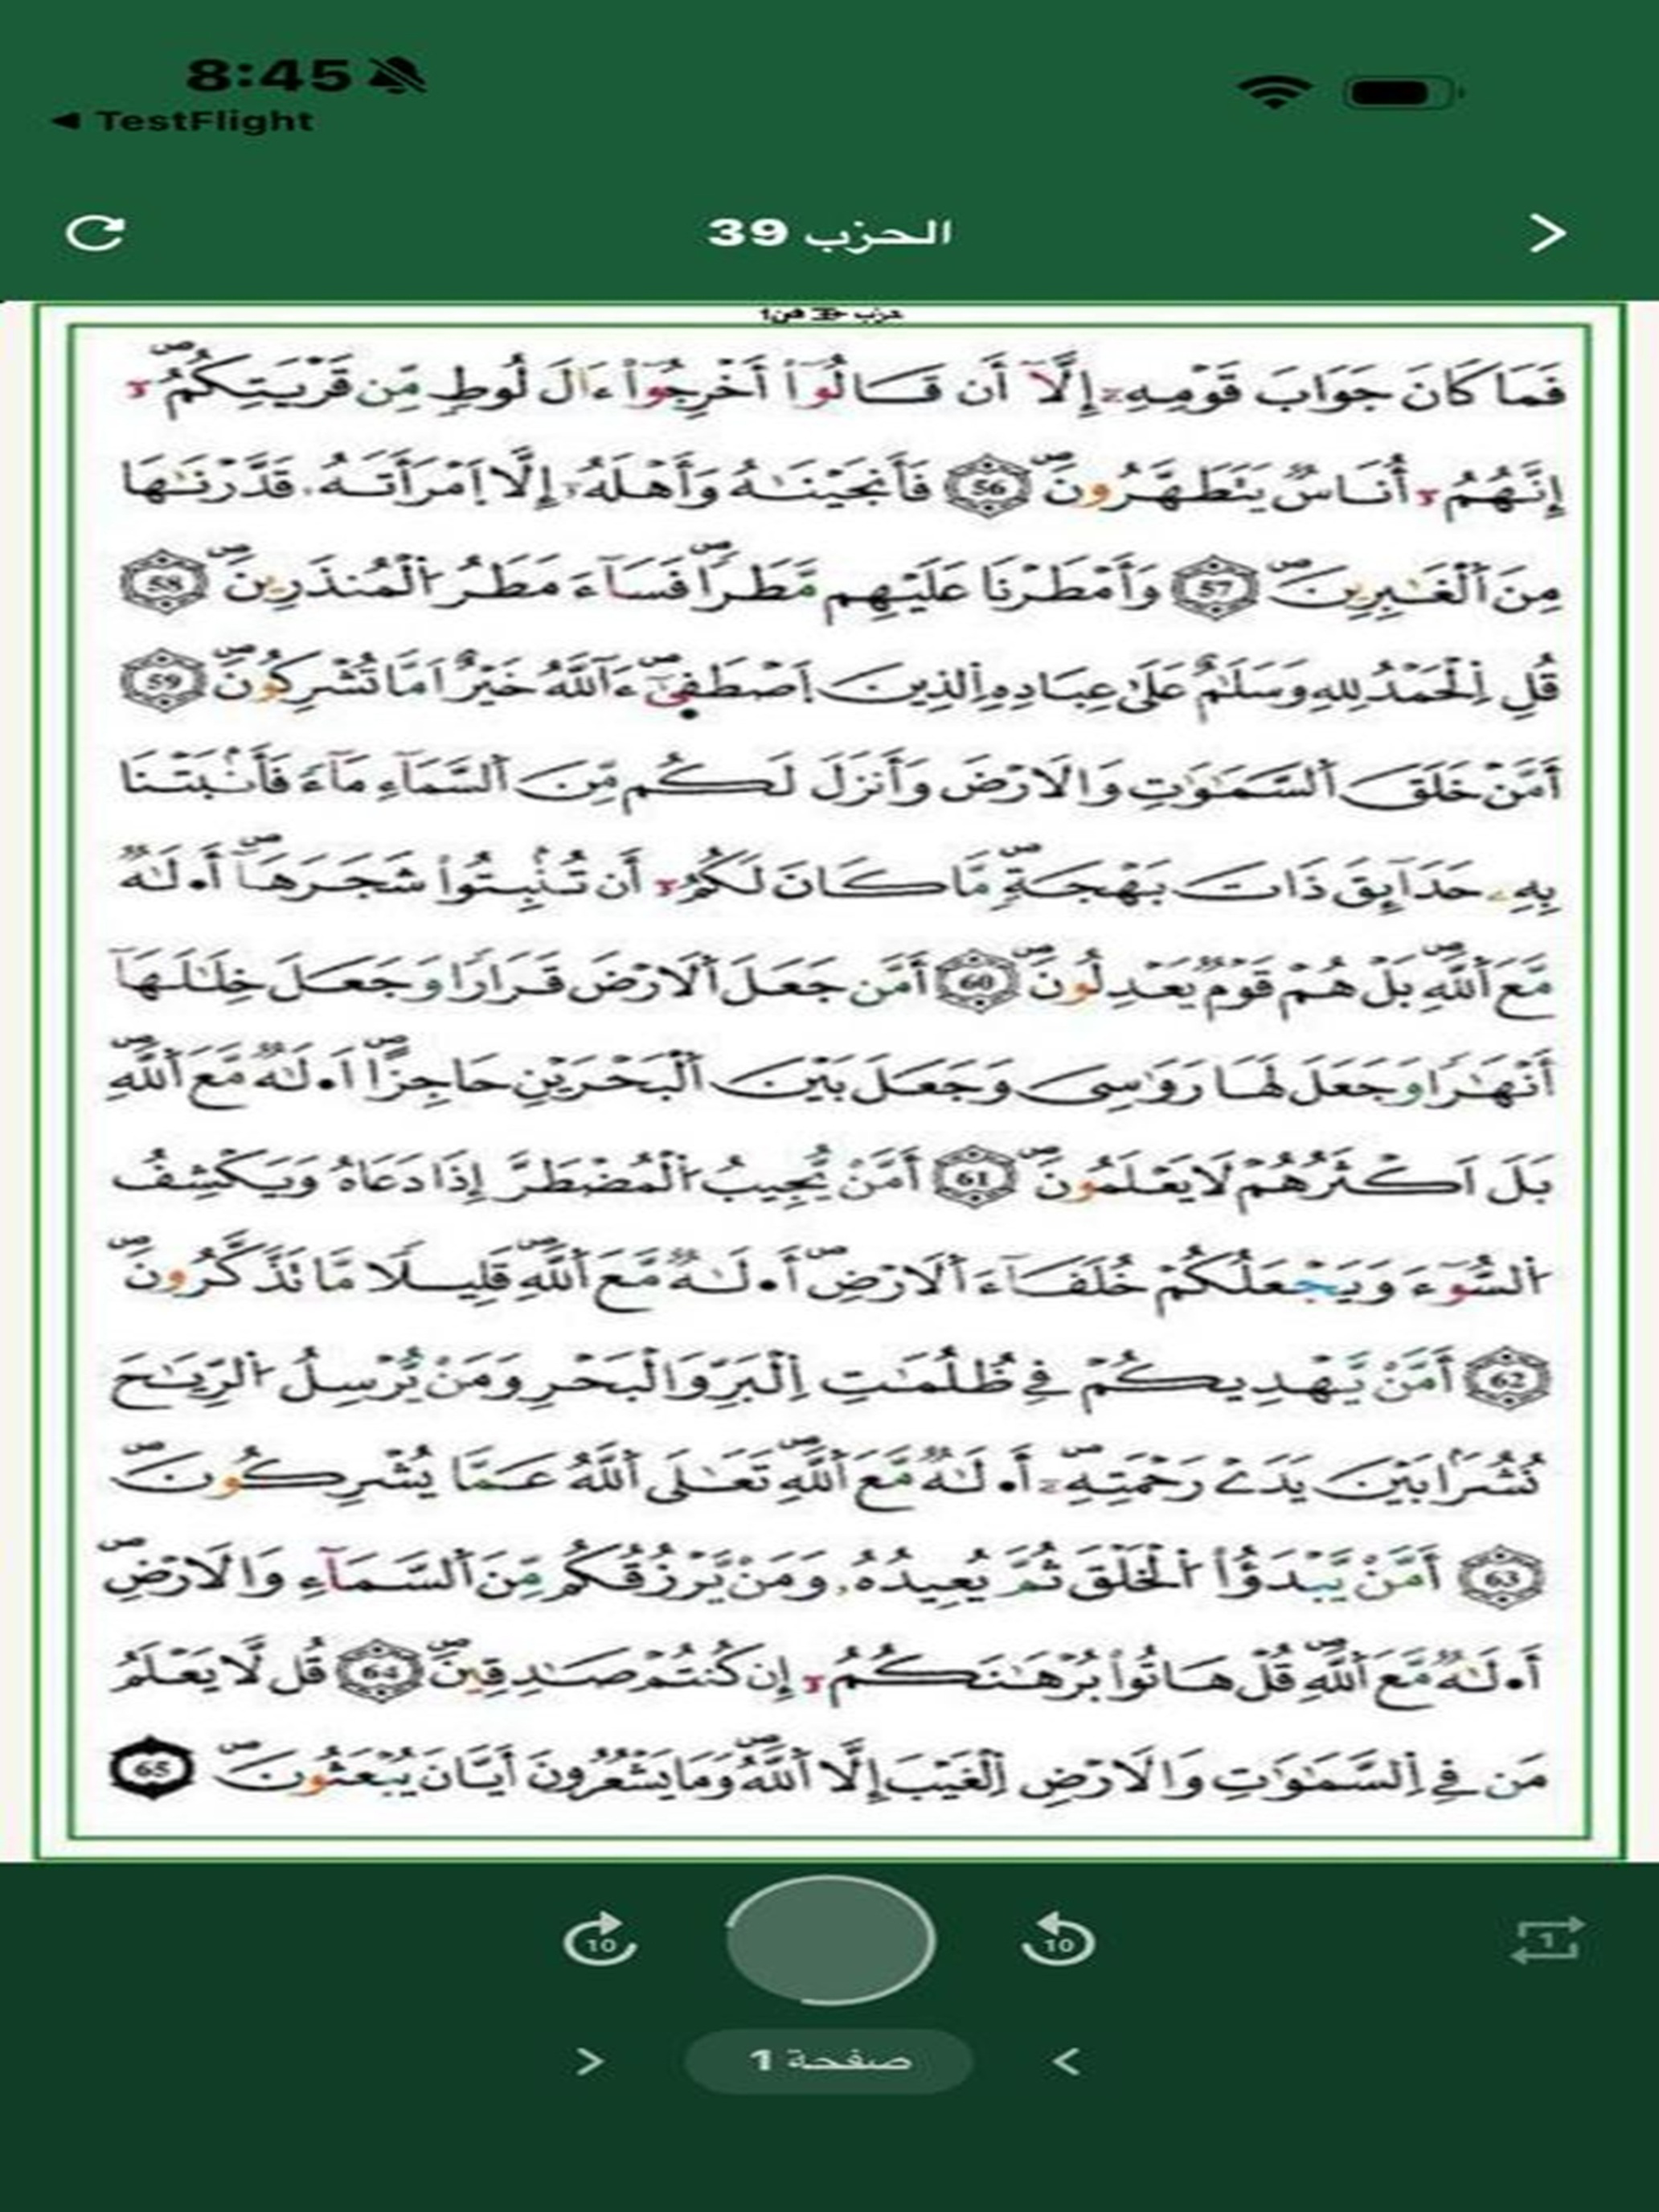 8:45
TestFlight
الحزب 39
فَمَا كَانَ جَوَابَ قَوْمِهِۦٓ إِلَّآ أَن قَالُوٓاْ أَخْرِجُوٓاْ ءَالَ لُوطٖ مِّن قَرْيَتِكُمُۥٓۖ
إِنَّهُمُۥٓ أُنَاسٞ يَتَطَهَّرُونَۖ 56 فَأَنجَيْنَٰهُ وَأَهْلَهُۥٓ إِلَّا اَمْرَأَتَهُۥ قَدَّرْنَٰهَا
مِنَ اَلْغَٰبِرِينَۖ 57 وَأَمْطَرْنَا عَلَيْهِم مَّطَراٗۖ فَسَآءَ مَطَرُ اُلْمُنذَرِينَۖ 58
قُلِ اِلْحَمْدُ لِلهِ وَسَلَٰمٌ عَلَىٰ عِبَادِهِ اِلذِينَ اَصْطَف۪يٰٓۖ ءَآللَّهُ خَيْرٌ اَمَّا تُشْرِكُونَۖ 59
أَمَّنْ خَلَقَ اَلسَّمَٰوَٰتِ وَالَارْضَ وَأَنزَلَ لَكُم مِّنَ اَلسَّمَآءِ مَآءٗ فَأَنۢبَتْنَا
بِهِۦ حَدَآئِقَ ذَاتَ بَهْجَةٖۖ مَّا كَانَ لَكُمُۥٓ أَن تُنۢبِتُواْ شَجَرَهَآۖ أَ•لَٰهٞ
مَّعَ اَللَّهِۖ بَلْ هُمْ قَوْمٞ يَعْدِلُونَۖ 60 أَمَّن جَعَلَ اَلَارْضَ قَرَاراٗ وَجَعَلَ خِلَٰلَهَآ
أَنْهَٰراٗ وَجَعَلَ لَهَا رَوَٰسِيَ وَجَعَلَ بَيْنَ اَلْبَحْرَيْنِ حَاجِزاًۖ اَ•لَٰهٞ مَّعَ اَللَّهِۖ
بَلَ اَكْثَرُهُمْ لَا يَعْلَمُونَۖ 61 أَمَّنْ يُّجِيبُ اُلْمُضْطَرَّ إِذَا دَعَاهُ وَيَكْشِفُ
اُلسُّوٓءَ وَيَجْعَلُكُمْ خُلَفَآءَ اَلَارْضِۖ أَ•لَٰهٞ مَّعَ اَللَّهِۖ قَلِيلاٗ مَّا تَذَّكَّرُونَۖ
62 أَمَّنْ يَّهْدِيكُمْ فِي ظُلُمَٰتِ اِلْبَرِّ وَالْبَحْرِ وَمَنْ يُّرْسِلُ اُلرِّيَٰحَ
نُشُراَۢ بَيْنَ يَدَيْ رَحْمَتِهِۦٓۖ أَ•لَٰهٞ مَّعَ اَللَّهِۖ تَعَٰلَى اَللَّهُ عَمَّا يُشْرِكُونَۖ
63 أَمَّنْ يَّبْدَؤُاْ اُلْخَلْقَ ثُمَّ يُعِيدُهُۥ وَمَنْ يَّرْزُقُكُم مِّنَ اَلسَّمَآءِ وَالَارْضِۖ
أَ•لَٰهٞ مَّعَ اَللَّهِۖ قُلْ هَاتُواْ بُرْهَٰنَكُمُۥٓ إِن كُنتُمْ صَٰدِقِينَۖ 64 قُل لَّا يَعْلَمُ
مَن فِي اِلسَّمَٰوَٰتِ وَالَارْضِ اِلْغَيْبَ إِلَّا اَللَّهُۖ وَمَا يَشْعُرُونَ أَيَّانَ يُبْعَثُونَۖ 65
10
10
1
صفحة 1